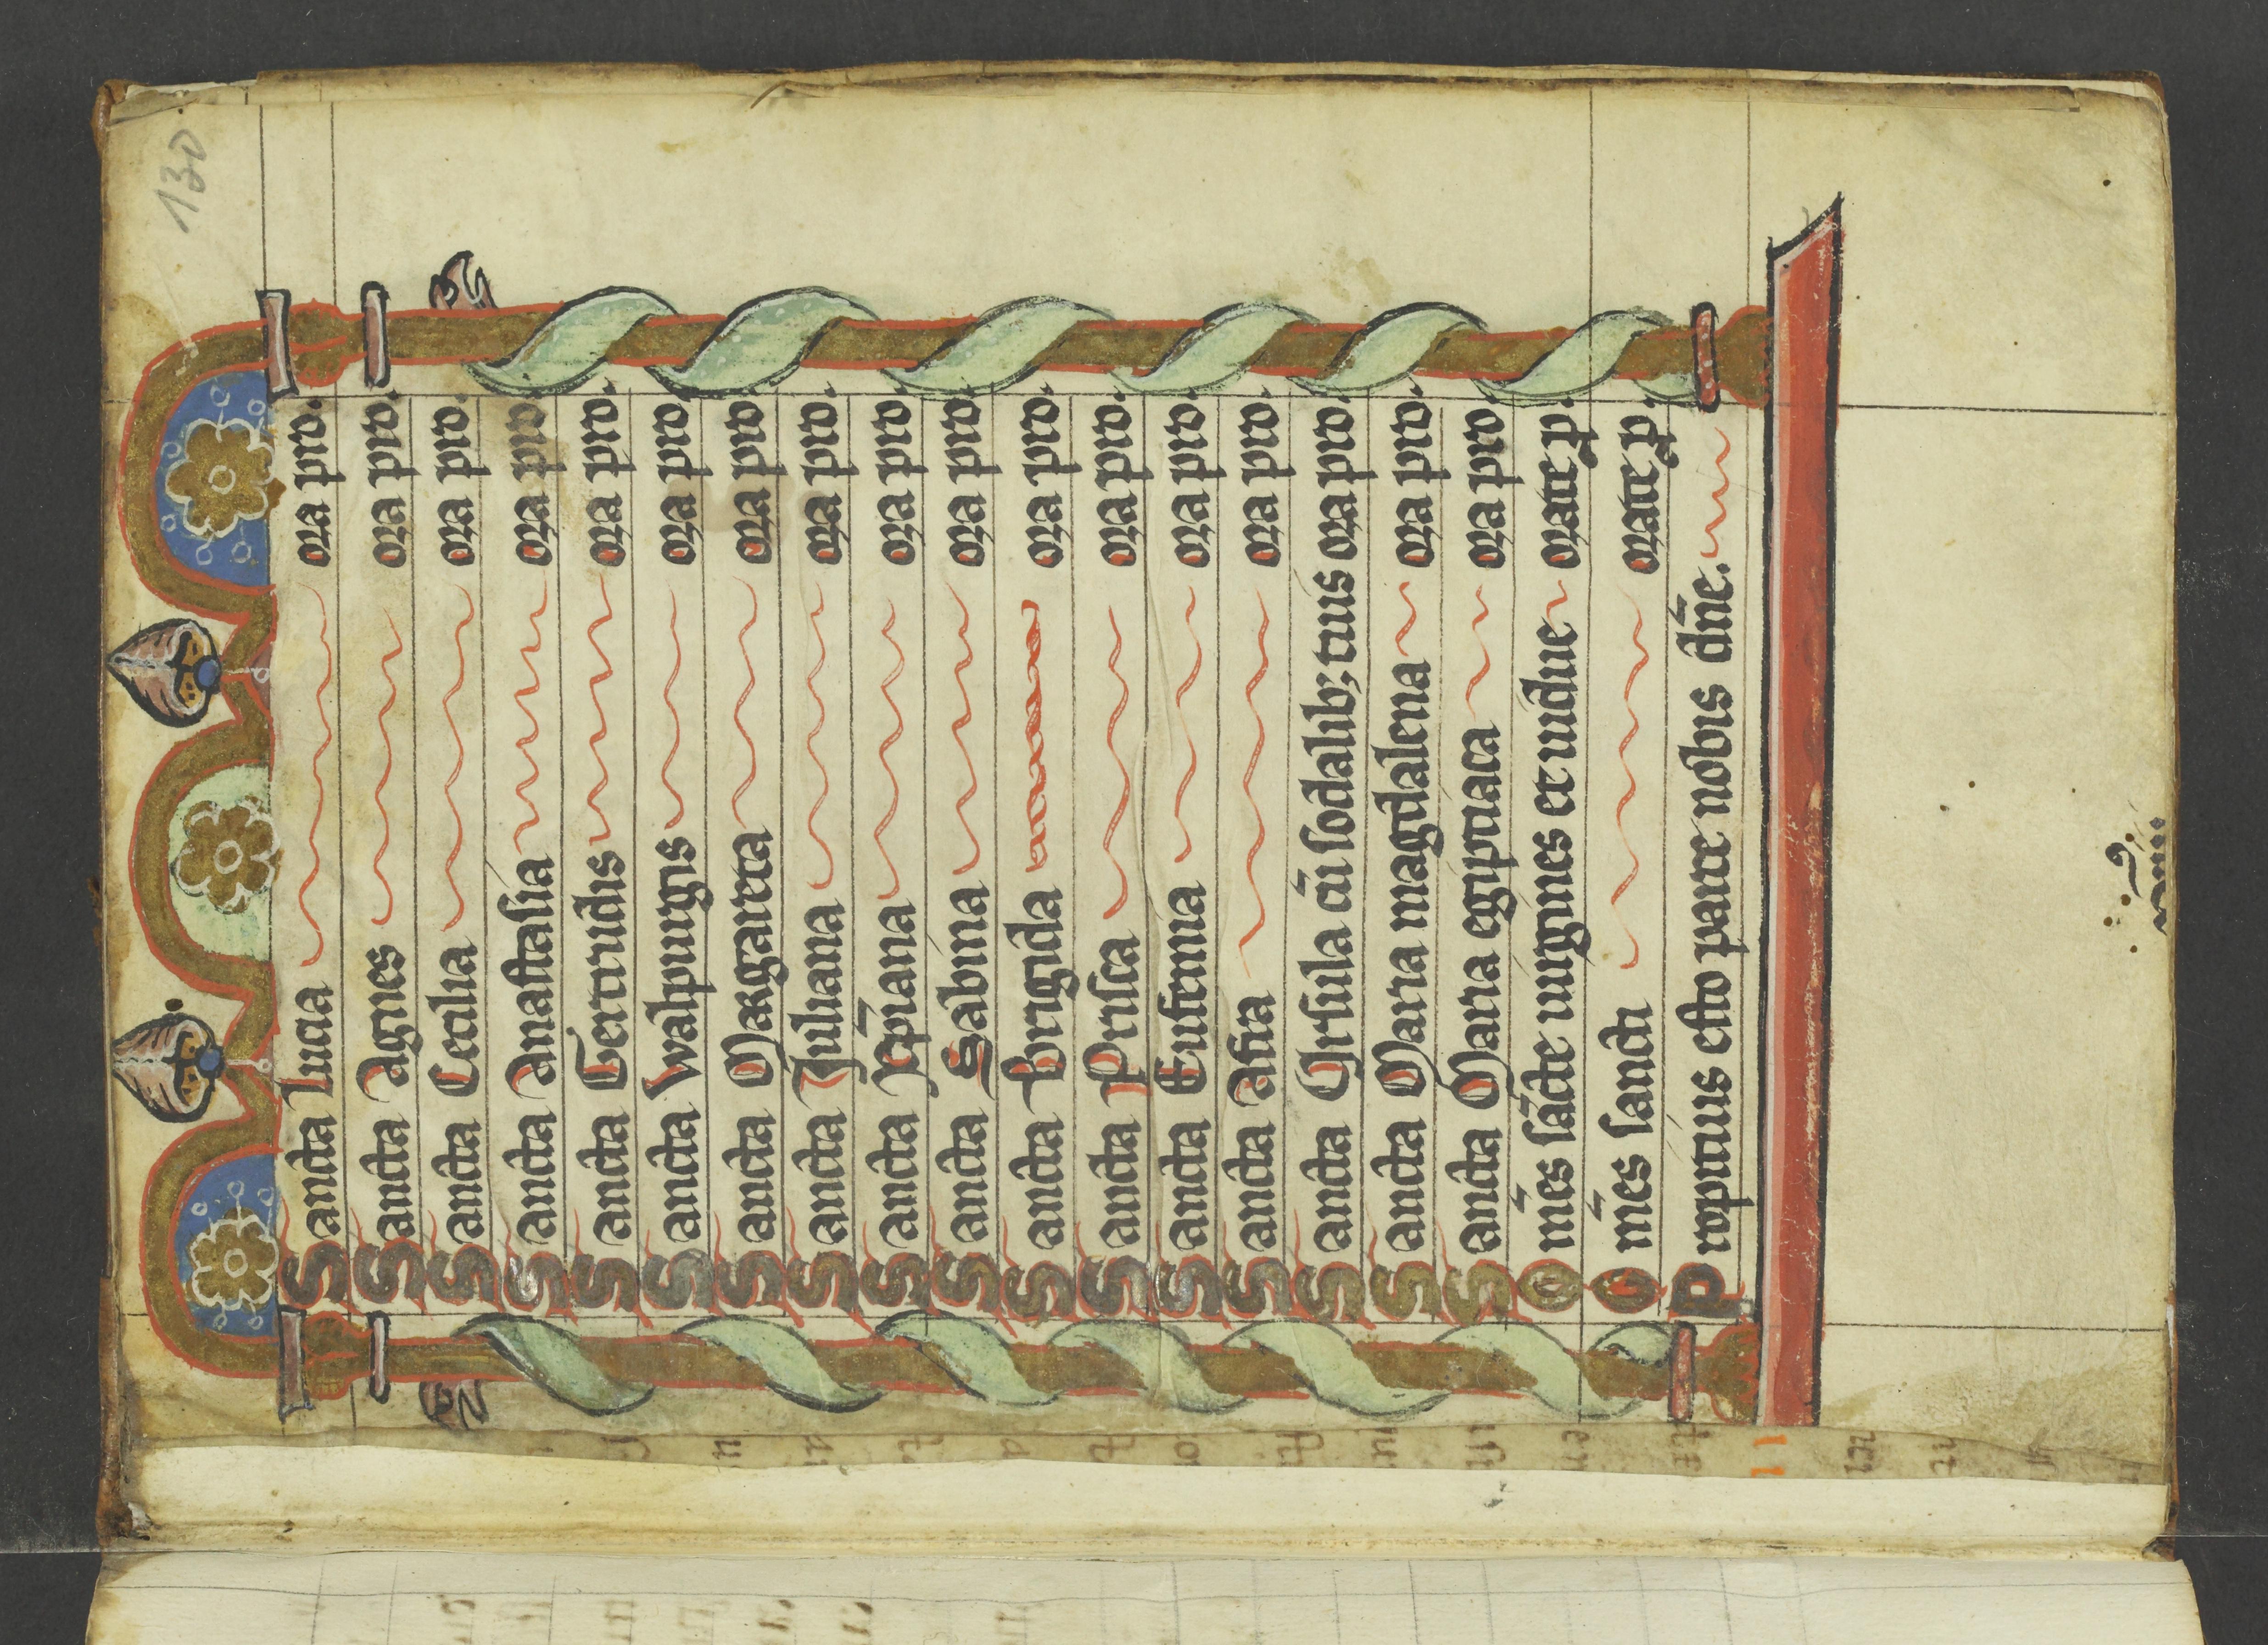 130
Sancta Lucia ora pro.
Sancta Agnes ora pro.
Sancta Cecilia ora pro.
Sancta Anastasia ora pro.
Sancta Gertrudis ora pro.
Sancta Walpurgis ora pro.
Sancta Margareta ora pro.
Sancta Juliana ora pro.
Sancta Xp̄iana ora pro.
Sancta Sabina ora pro.
Sancta Brigida ora pro.
Sancta Prisca ora pro.
Sancta Eufemia ora pro.
Sancta Afra ora pro.
Sancta Ursula cū sodalibꝫ tuis ora pro
Sancta Maria magdalena ora pro.
Sancta Maria egiptiaca ora pro
Om̄es sācte uirgines et uidue orate ꝓ.
Om̄es sancti orate ꝓ.
Propitius esto parce nobis dn̄e.